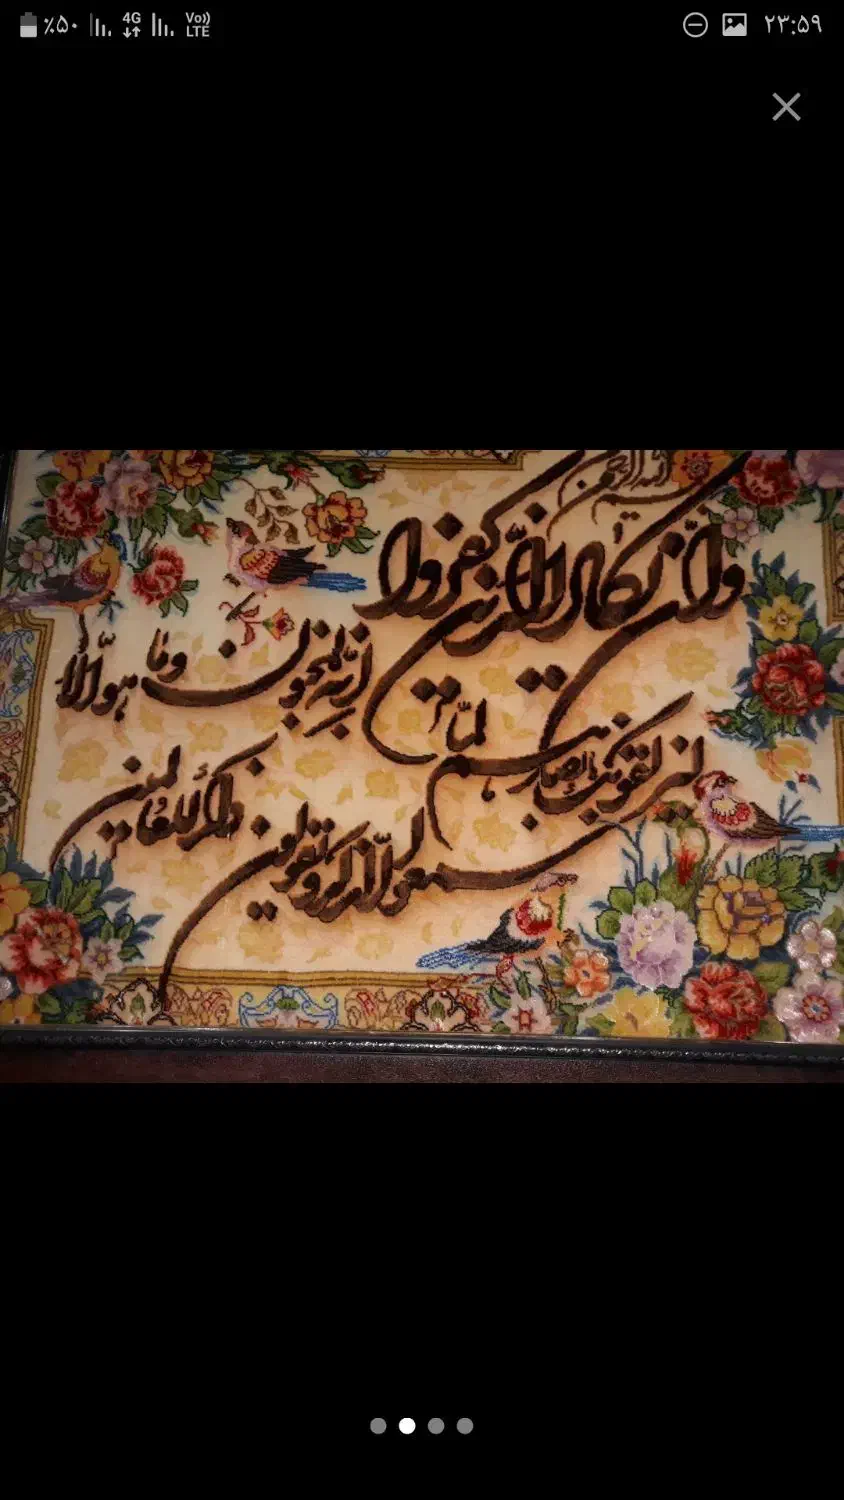 ٪۵۰ 4G Vo)) LTE ۲۳:۵۹
الله الرحمن
وان یکاد الذین کفروا
لیزلقونک بابصارهم لما
سمعوا الذکر و یقولون
انه لمجنون وما هو الا
ذکر للعالمین